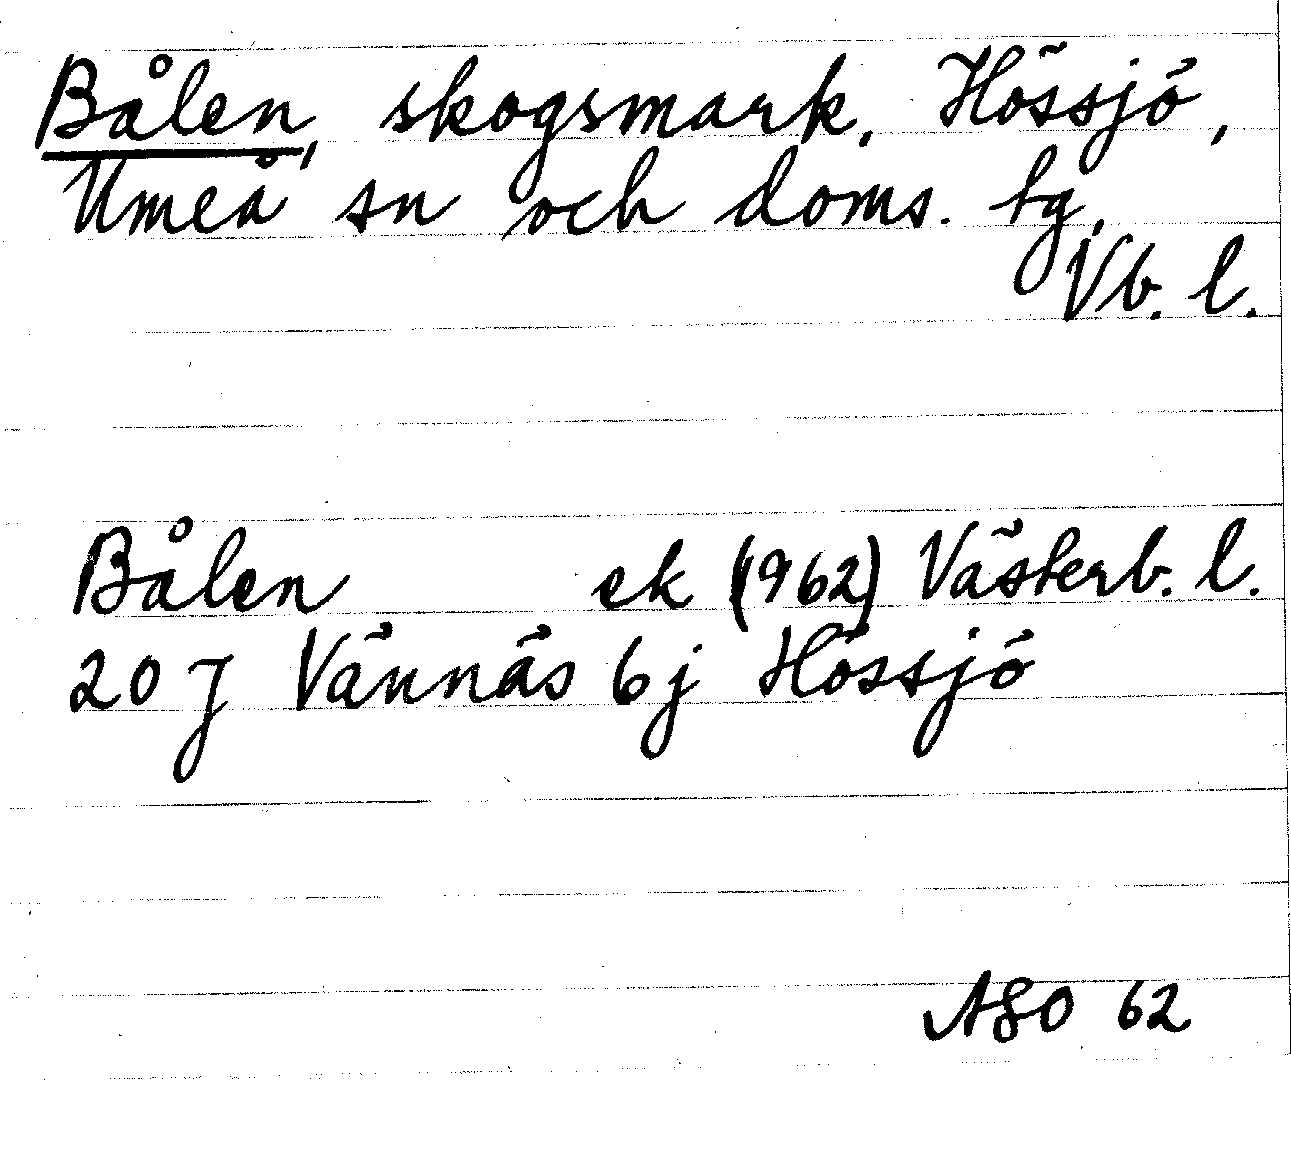 Bålen, skogsmark, Hössjö,
Umeå sn och doms. tg,
Vb. l.
Bålen ek (1962) Västerb. l.
20 J Vännäs 6j Hössjö
ASO 62